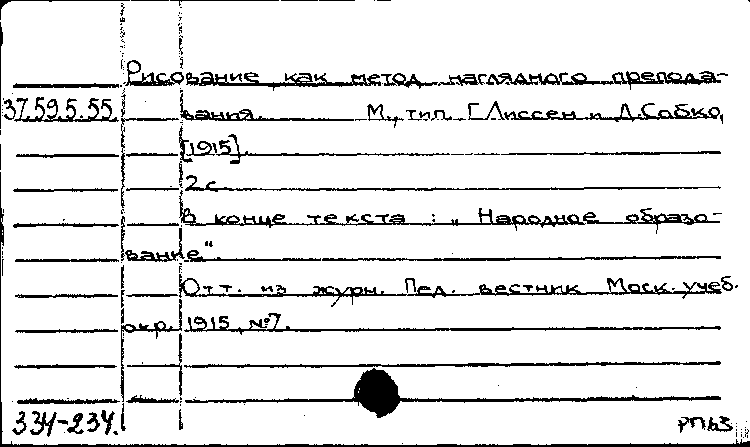 Рисование как метод наглядного препода-
37.59.5.55. вания. М., тип. Г.Лиссен и Д.Собко,
[1915].
2 с.
В конце текста : „Народное образо-
вание".
Отт. из журн. Пед. вестник Моск. учеб.
окр. 1915, №7.
334-234.